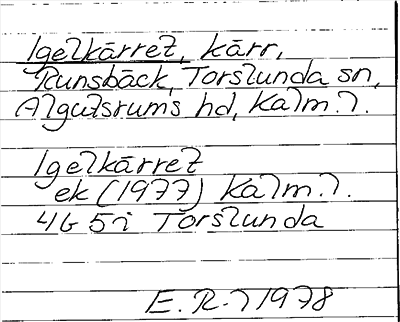 Igelkärret, kärr,
Runsbäck, Torslunda sn,
Algutsrums hd, Kalm.l.
Igelkärret
ek (1977) Kalm.l.
4G 5i Torslunda
E.R-l 1978